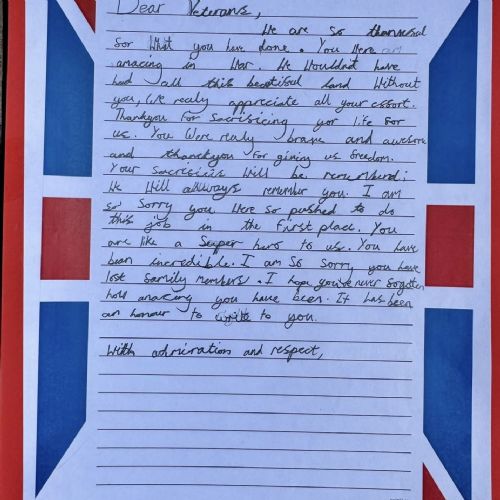 Dear Veterans,
We are so thankful
for what you have done. You were an
amazing in war. We wouldnt have
had all this beatiful land without
you, We realy appreciate all your effort.
Thankyou for sacrificing your life for
us. You were realy brave and awesome
and thankyou for giving us freedom.
Your sacrefices will be remembered:
We will allways remember you. I am
so sorry you were so pushed to do
this job in the first place. You
are like a super hero to us. You have
been incredible. I am so sorry you have
lost family members. I hope you've never forgoten
how amazing you have been. It has been
an honour to write to you.
With admiration and respect,